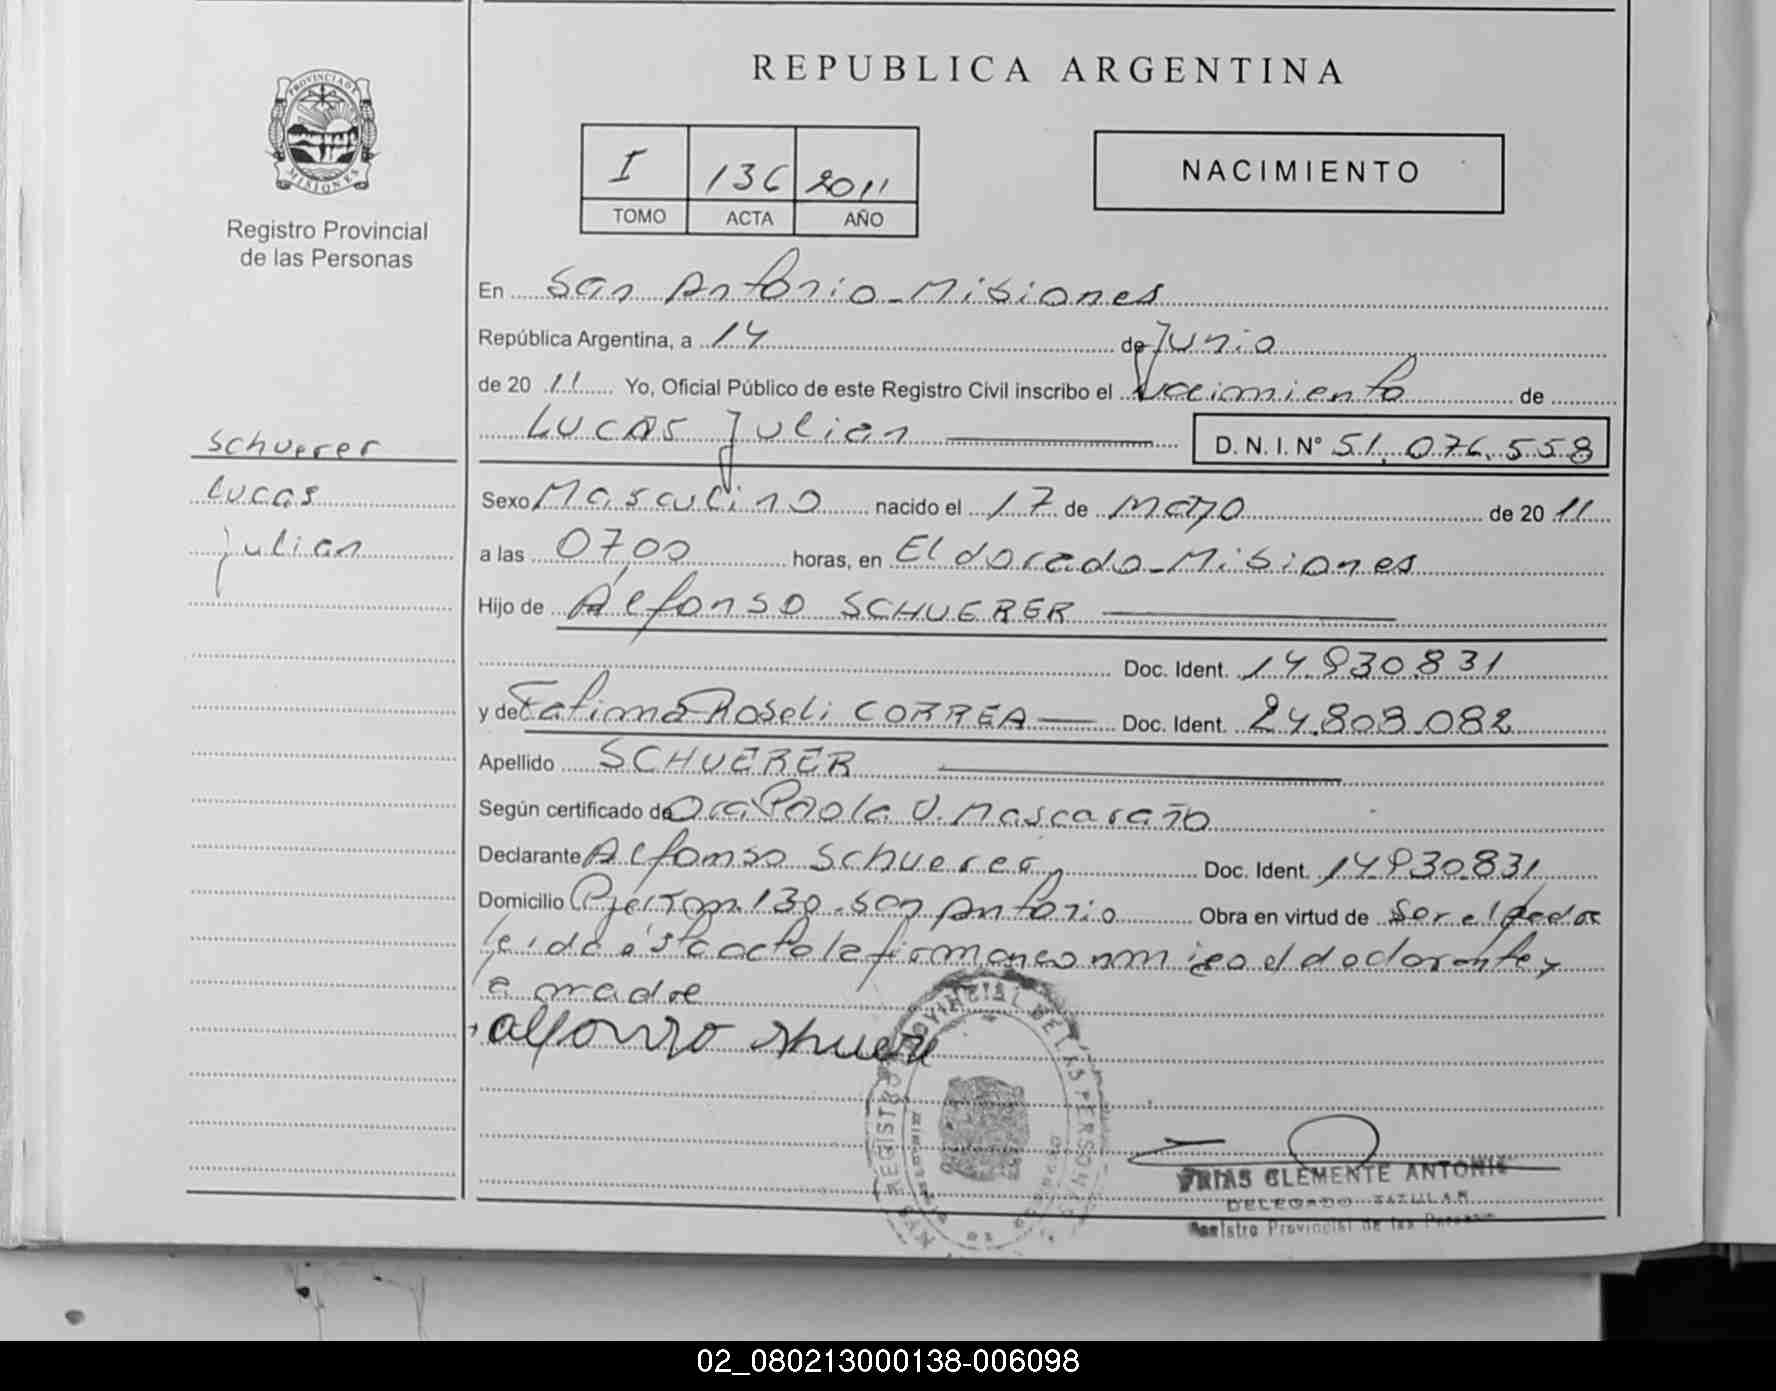 REPUBLICA ARGENTINA
PROVINCIA DE MISIONES
Registro Provincial
de las Personas
I 136 2011
TOMO ACTA AÑO
NACIMIENTO
En San Antonio - Misiones
República Argentina, a 14 de Junio
de 20 11 Yo, Oficial Público de este Registro Civil inscribo el Nacimiento de
Lucas Julian D. N. I. N° 51.076.558
Schuerer
Lucas
Julian
Sexo Masculino nacido el 17 de Mayo de 20 11
a las 07,00 horas, en Eldorado - Misiones
Hijo de Alfonso SCHUERER
Doc. Ident. 14.930831
y de Fatima Roseli CORREA Doc. Ident. 24.808.082
Apellido SCHUERER
Según certificado de Dra Paola V. Mascaraño
Declarante Alfonso Schuerer Doc. Ident. 14930.831
Domicilio 130 - San Antonio Obra en virtud de Ser el
leida esta acta la firman conmigo el declarante y
madre
Alfonso
REGISTRO PROVINCIAL DE LAS PERSONAS
FRIAS CLEMENTE ANTONIO
DELEGADO TITULAR
Registro Provincial de las Personas
02_080213000138-006098